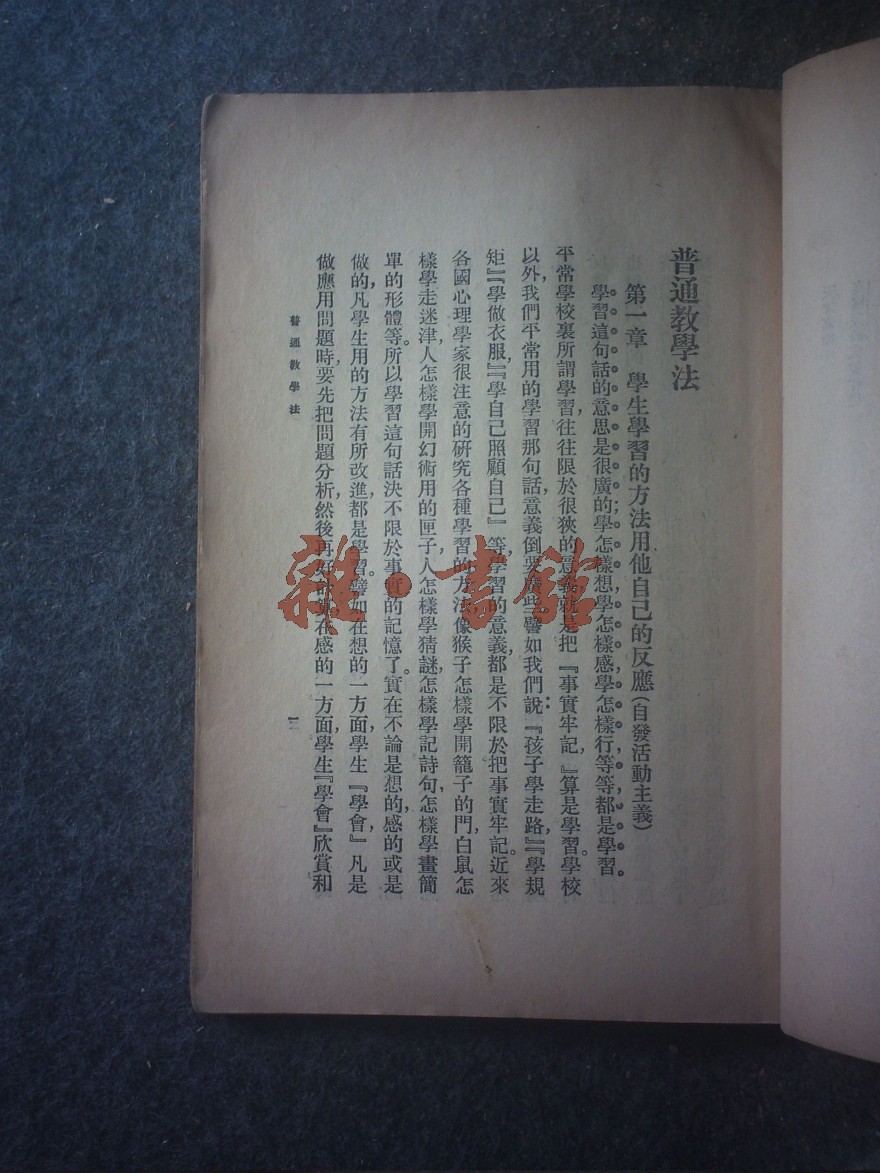 普通教學法
第一章　學生學習的方法用他自己的反應(自發活動主義)
學習這句話的意思是很廣的;學怎樣想,學怎樣感,學怎樣行,等等,都是學習。
平常學校裏所謂學習,往往限於很狹的意義,就是把『事實牢記,』算是學習。學校
以外,我們平常用的學習那句話,意義倒要廣些。譬如我們說:『孩子學走路,』『學規
矩,』『學做衣服,』『學自己照顧自己』等,學習的意義,都是不限於把事實牢記。近來
各國心理學家很注意的研究各種學習的方法,像猴子怎樣學開籠子的門,白鼠怎
樣學走迷津,人怎樣學開幻術用的匣子,人怎樣學猜謎,怎樣學記詩句,怎樣學畫簡
單的形體等。所以學習這句話決不限於事實的記憶了。實在不論是想的,感的,或是
做的,凡學生用的方法有所改進,都是學習。譬如在想的一方面,學生『學會』凡是
做應用問題時,要先把問題分析,然後再在感的一方面,學生『學會』欣賞和
普通教學法
一
雜·書館